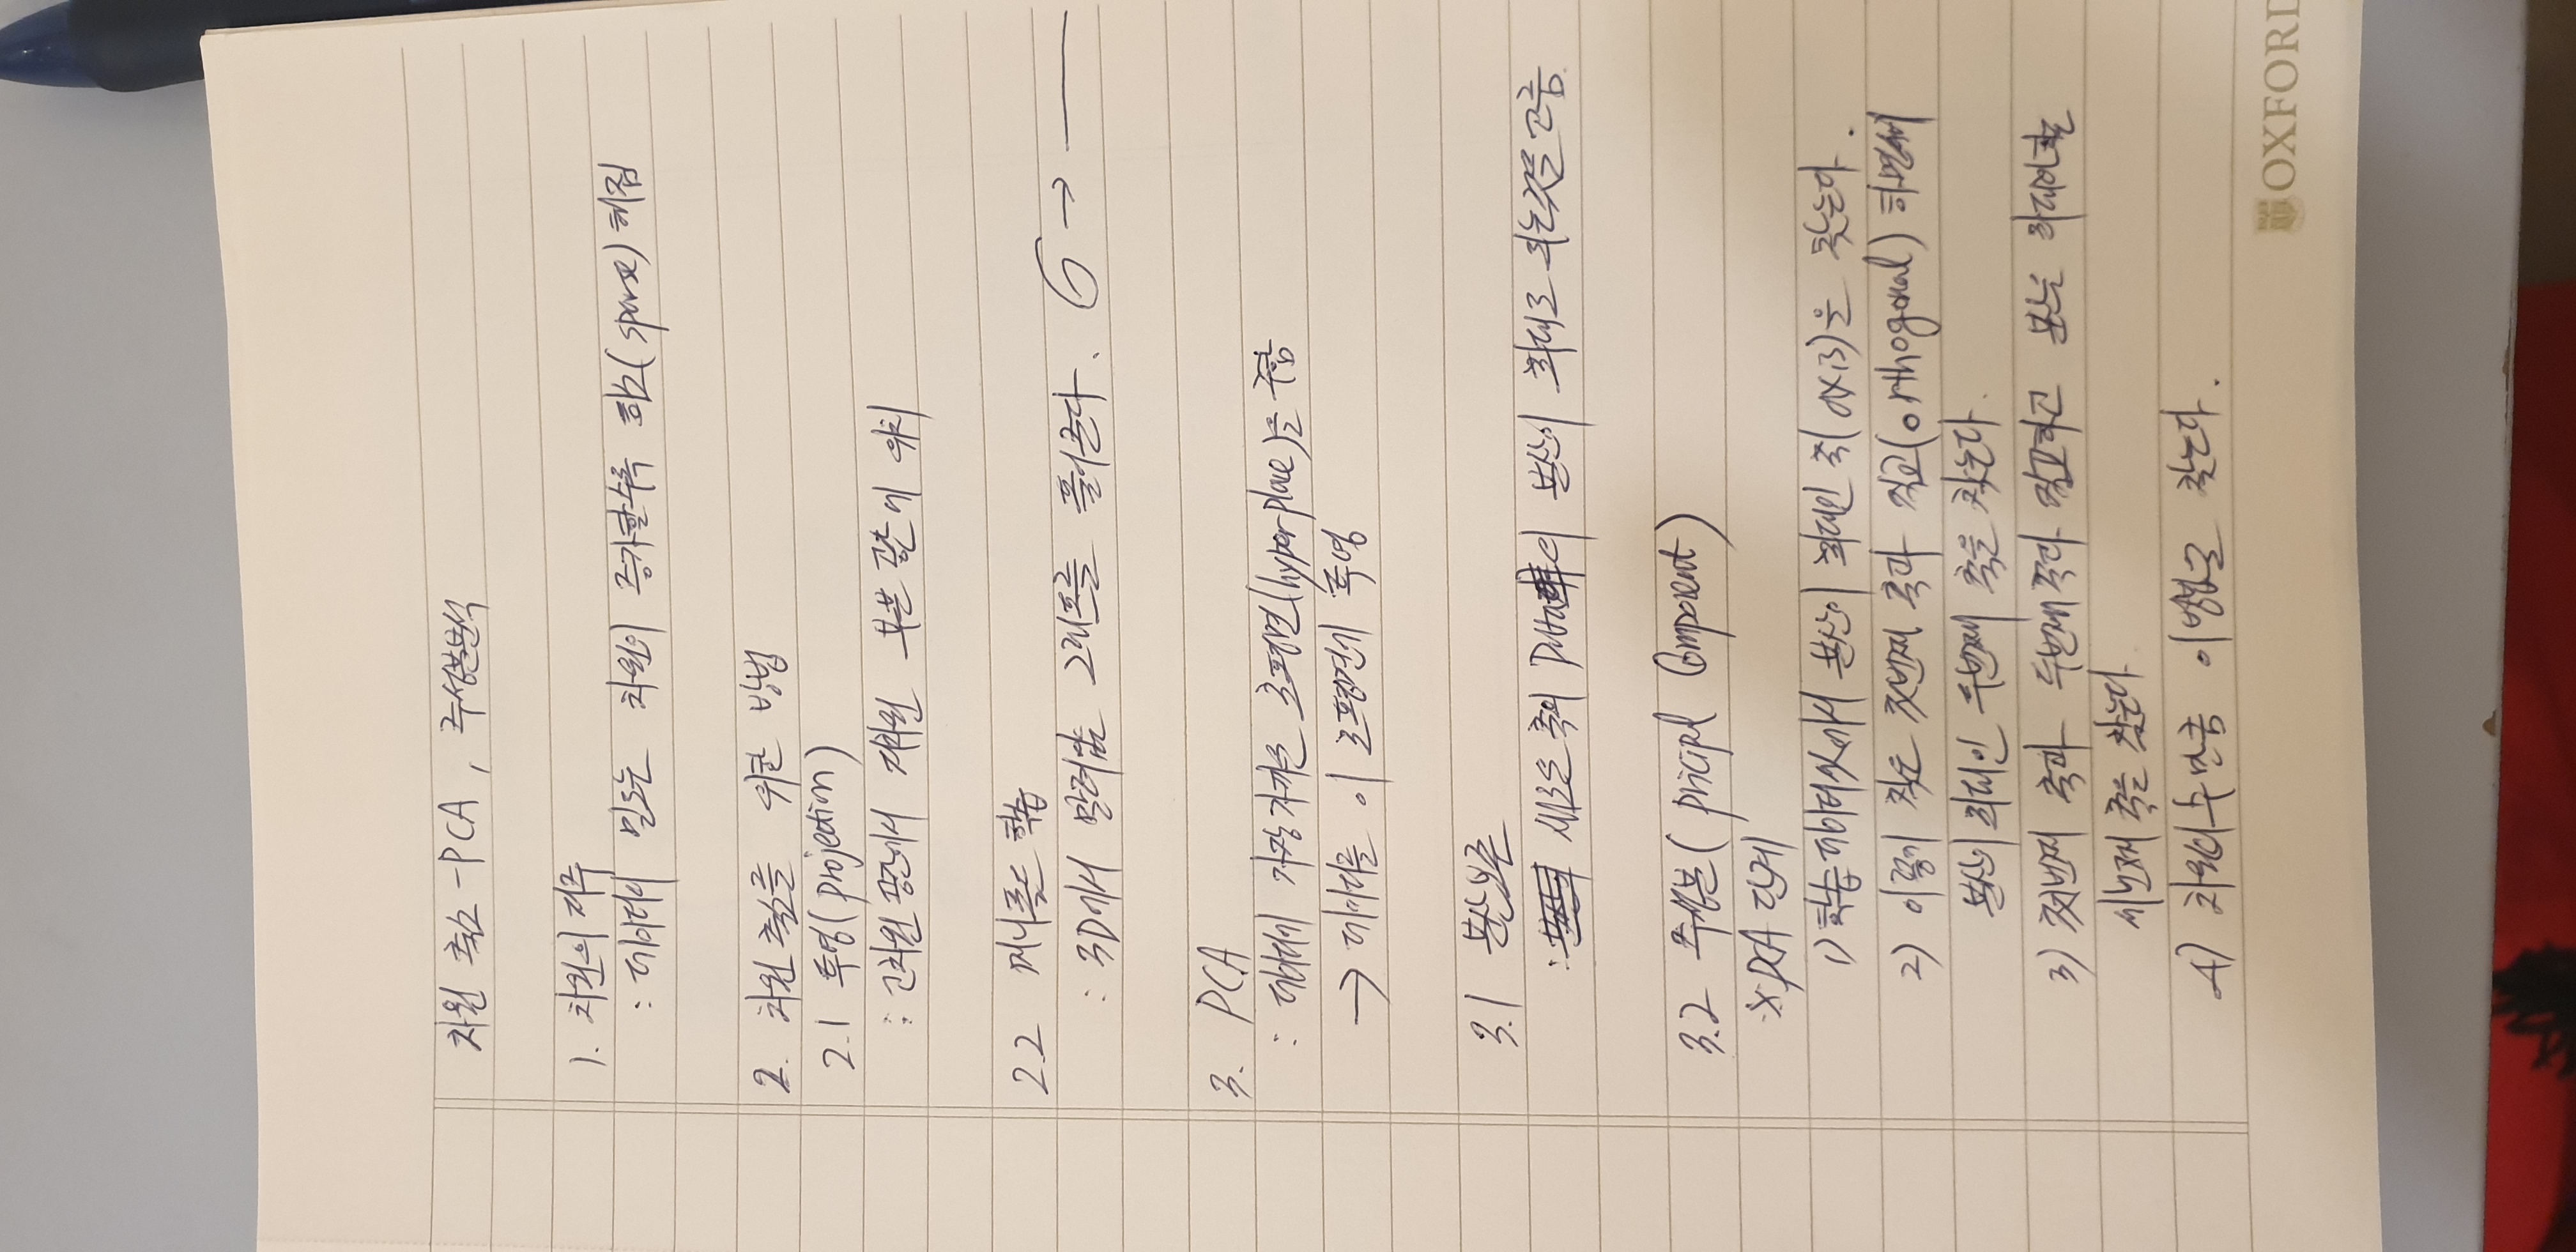 차원 축소 - PCA, 주성분분석
1. 차원의 저주
: 데이터의 밀도는 차원이 증가할수록 희소(sparse)해짐
2. 차원 축소를 위한 방법
2.1 투영(projection)
: 고차원 공간에서 저차원 부분 공간에 위치
2.2 매니폴드 학습
: 3D에서 말려있는 그래프를 풀어준다.
3. PCA
: 데이터에 가장 가까운 초평면(hyper plane)을 구함
→ 데이터를 이 초평면에 투영
3.1 분산보존
: 새로운 축의 Data의 분산이 최대로 되는것을 고름
3.2 주성분(pricipl Component)
※ PCA 단계
1) 학습 데이터셋에서 분산이 최대인 축(axis)을 찾는다.
2) 이렇게 찾은 첫번째 축과 직교(orthogonal)하면서
분산이 최대인 두번째 축을 찾는다.
3) 첫번째 축과 두번째 축과 직교하고 분산을 최대화하는
세번째 축을 찾는다
4) 차원의 수만큼 이 방법으로 찾는다.
OXFORD